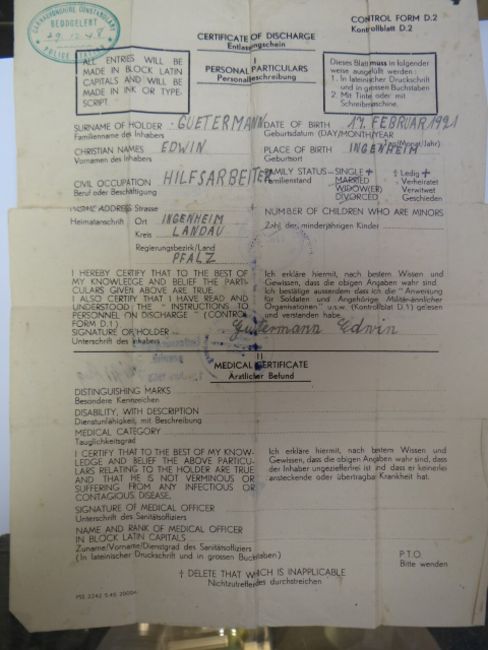 CAERNARVONSHIRE CONSTABULARY
BEDDGELERT
29.12.48
POLICE STATION
CONTROL FORM D.2
Kontrollblatt D.2
CERTIFICATE OF DISCHARGE
Entlassungschein
ALL ENTRIES WILL BE
MADE IN BLOCK LATIN
CAPITALS AND WILL BE
MADE IN INK OR TYPE-
SCRIPT.
PERSONAL PARTICULARS
Personalbeschreibung
Dieses Blatt muss in folgender
weise ausgefüllt werden :
1. In lateinischer Druckschrift
und in grossen Buchstaben
2. Mit Tinte oder mit
Schreibmaschine.
SURNAME OF HOLDER GUETERMANN
Familienname des Inhabers
DATE OF BIRTH 17. FEBRUAR 1921
Geburtsdatum (DAY/MONTH/YEAR
Tag/Monat/Jahr)
CHRISTIAN NAMES EDWIN
Vornamen des Inhabers
PLACE OF BIRTH INGENHEIM
Geburtsort
CIVIL OCCUPATION HILFSARBEITER
Beruf oder Beschäftigung
FAMILY STATUS— SINGLE † † Ledig †
Familienstand MARRIED Verheiratet
WIDOW(ER) Verwitwet
DIVORCED Geschieden
HOME ADDRESS Strasse
Heimatanschrift Ort INGENHEIM
Kreis LANDAU
Regierungsbezirk/Land
PFALZ
NUMBER OF CHILDREN WHO ARE MINORS
Zahl der minderjährigen Kinder
I HEREBY CERTIFY THAT TO THE BEST OF
MY KNOWLEDGE AND BELIEF THE PARTI-
CULARS GIVEN ABOVE ARE TRUE.
I ALSO CERTIFY THAT I HAVE READ AND
UNDERSTOOD THE " INSTRUCTIONS TO
PERSONNEL ON DISCHARGE " (CONTROL
FORM D.1)
Ich erkläre hiermit, nach bestem Wissen und
Gewissen, dass die obigen Angaben wahr sind.
Ich bestätige ausserdem dass ich die " Anweisung
für Soldaten und Angehörige Militär-ähnlicher
Organisationen " u.s.w. (Kontrollblatt D.1) gelesen
und verstanden habe.
SIGNATURE OF HOLDER Gütermann Edwin
Unterschrift des Inhabers
II
MEDICAL CERTIFICATE
Ärztlicher Befund
DISTINGUISHING MARKS
Besondere Kennzeichen
DISABILITY, WITH DESCRIPTION
Dienstunfähigkeit, mit Beschreibung
MEDICAL CATEGORY
Tauglichkeitsgrad
I CERTIFY THAT TO THE BEST OF MY KNOW-
LEDGE AND BELIEF THE ABOVE PARTICU-
LARS RELATING TO THE HOLDER ARE TRUE
AND THAT HE IS NOT VERMINOUS OR
SUFFERING FROM ANY INFECTIOUS OR
CONTAGIOUS DISEASE.
Ich erkläre hiermit, nach bestem Wissen und
Gewissen, dass die obigen Angaben wahr sind, dass
der Inhaber ungezieferfrei ist und dass er keinerlei
ansteckende oder übertragbare Krankheit hat.
SIGNATURE OF MEDICAL OFFICER
Unterschrift des Sanitätsoffiziers
NAME AND RANK OF MEDICAL OFFICER
IN BLOCK LATIN CAPITALS
Zuname/Vorname/Dienstgrad des Sanitätsoffiziers
(In lateinischer Druckschrift und in grossen Buchstaben)
P.T.O.
Bitte wenden
† DELETE THAT WHICH IS INAPPLICABLE
Nichtzutreffendes durchstreichen